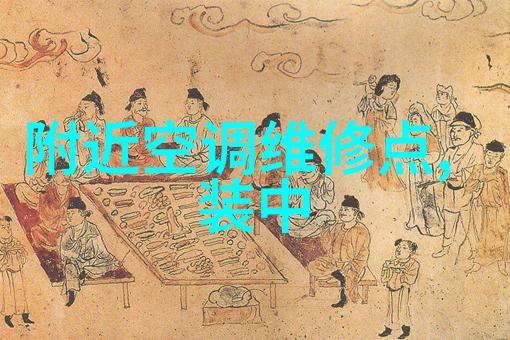 附近空调维修点,
装中